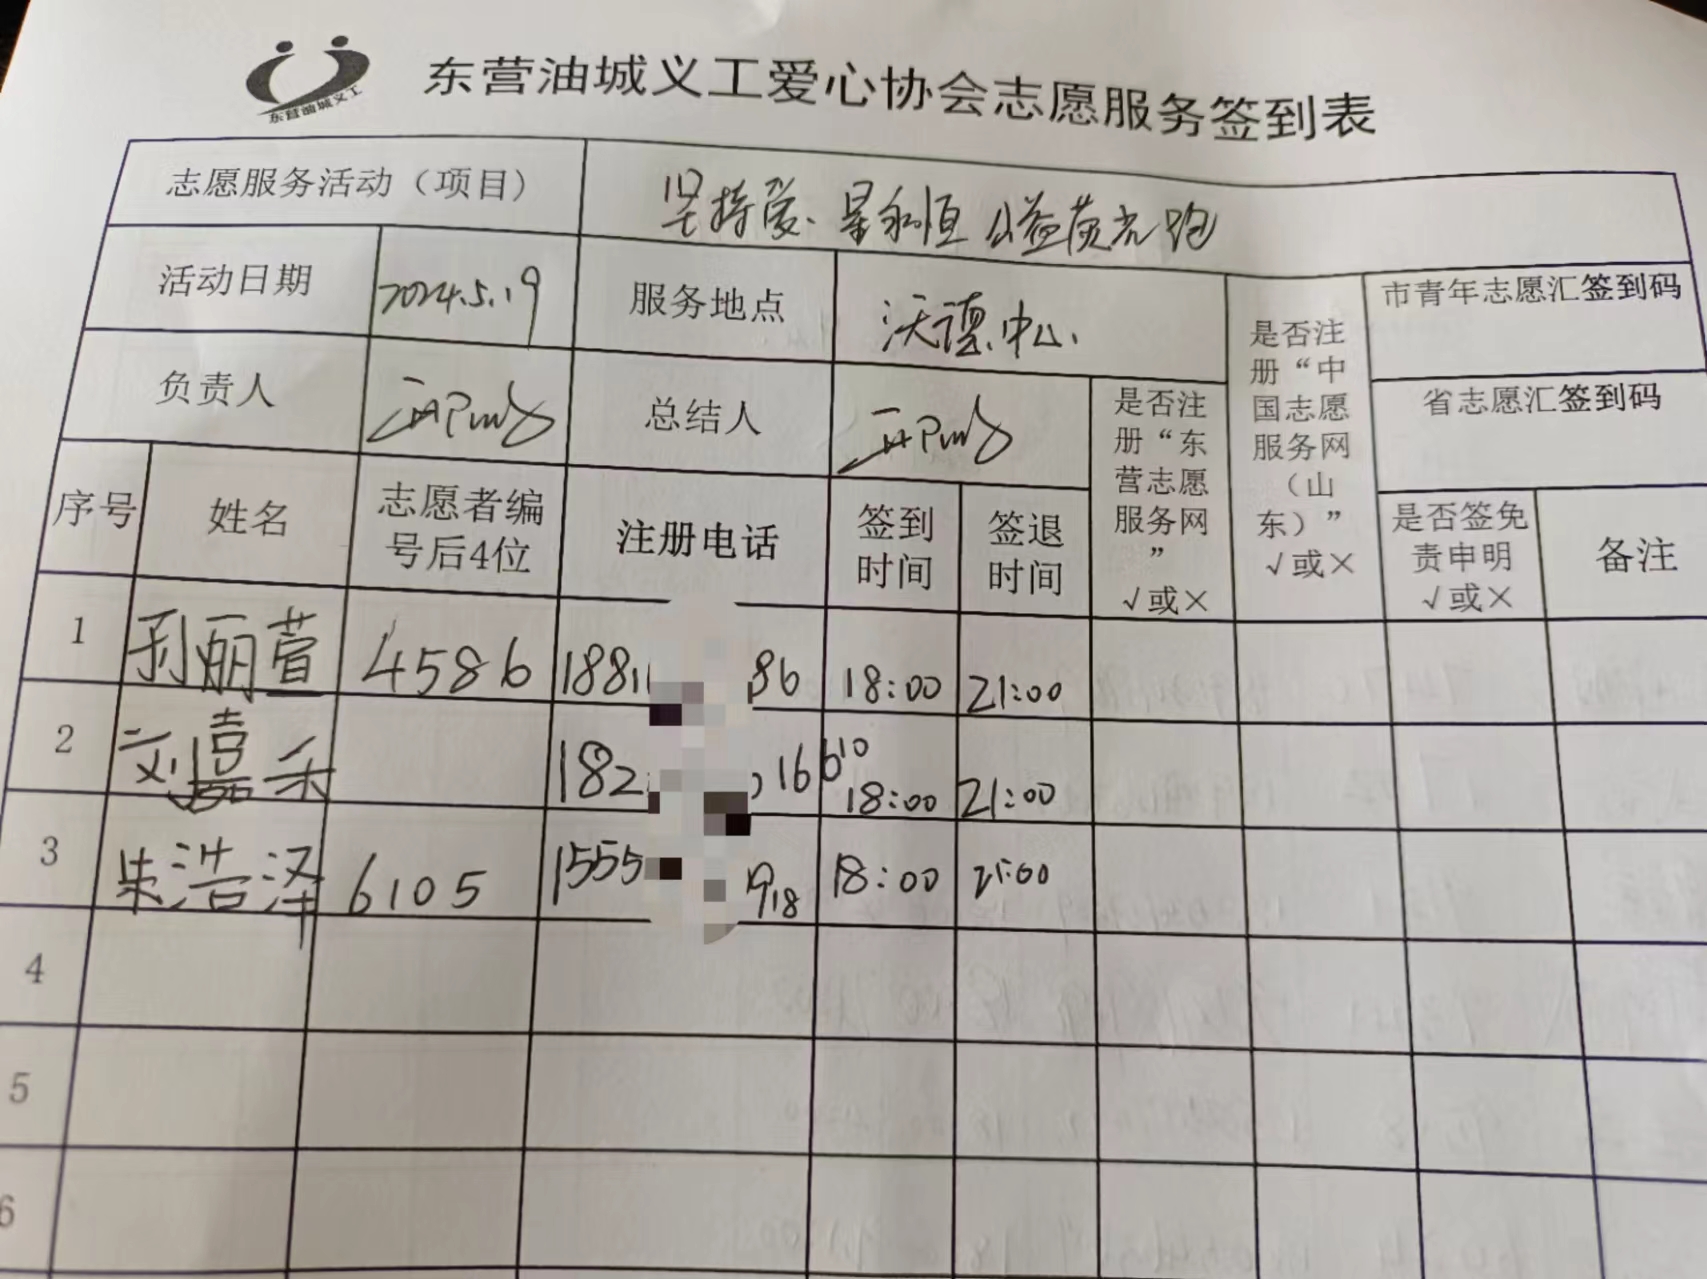 东营油城义工
东营油城义工爱心协会志愿服务签到表
志愿服务活动（项目） 坚持爱、星永恒 公益荧光跑
活动日期 2024.5.19 服务地点 沃德中心、 是否注册“中国志愿服务网（山东）” √或× 市青年志愿汇签到码
负责人 总结人 是否注册“东营志愿服务网” √或× 省志愿汇签到码
序号 姓名 志愿者编号后4位 注册电话 签到时间 签退时间 是否签免责申明 √或× 备注
1 丽萱 4586 1881 86 18:00 21:00
2 刘嘉禾 182 16 610 18:00 21:00
3 朱浩泽 6105 1555 918 18:00 21:00
4
5
6